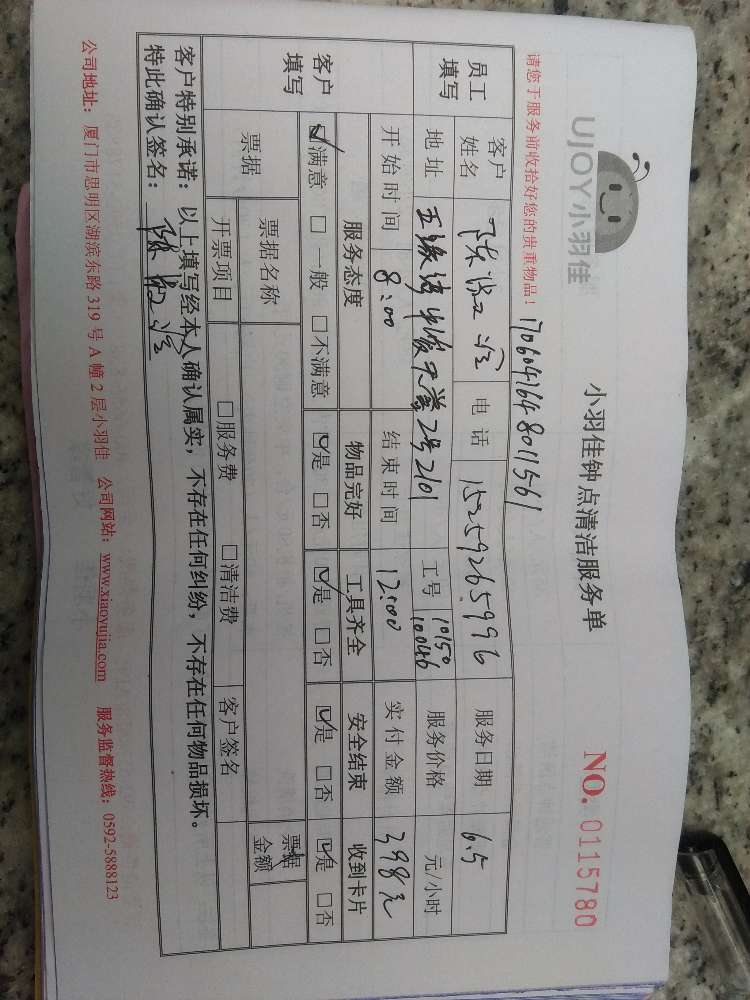 UJOY小羽佳
小羽佳钟点清洁服务单
NO. 0115780
请您于服务前收拾好您的贵重物品!
170604164801561
员工填写 客户姓名 陈 电话 15259265996 服务日期 6.5
地址 2号2101 工号 10150 10046 服务价格 元/小时
开始时间 8:00 结束时间 12:00 实付金额 398元
客户填写 服务态度 物品完好 工具齐全 安全结束 收到卡片
☑满意 □一般 □不满意 ☑是 □否 ☑是 □否 ☑是 □否 ☑是 □否
票据 票据名称 票据金额
开票项目 □服务费 □清洁费 客户签名
客户特别承诺:以上填写经本人确认属实,不存在任何纠纷,不存在任何物品损坏。
特此确认签名:陈
公司地址:厦门市思明区湖滨东路 319 号 A 幢 2 层小羽佳 公司网站:www.xiaoyujia.com 服务监督热线:0592-5888123